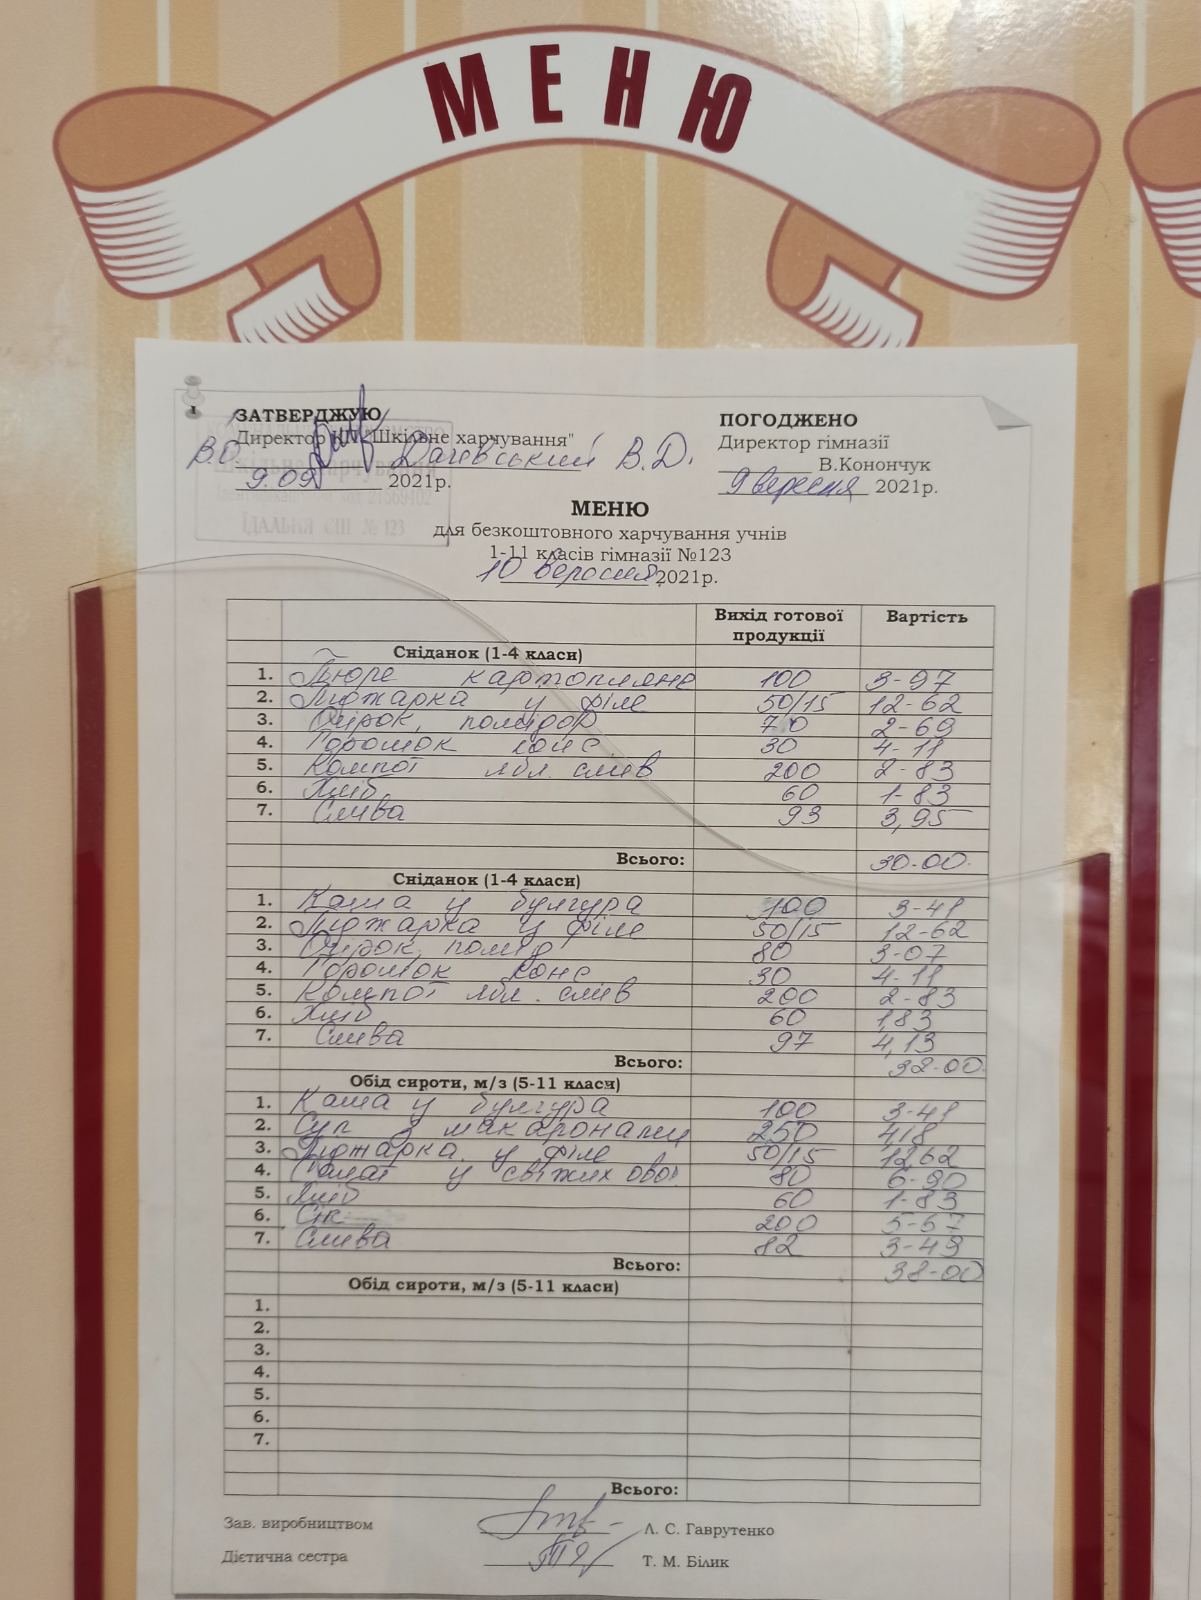 МЕНЮ
ЗАТВЕРДЖУЮ
Директор КП "Шкільне харчування"
В.О. Дачевський В.Д.
9.09 2021р.
ЇДАЛЬНЯ СШ № 123
ПОГОДЖЕНО
Директор гімназії
В.Конончук
9 вересня 2021р.
МЕНЮ
для безкоштовного харчування учнів
1-11 класів гімназії №123
10 вересня 2021р.
Вихід готової продукції Вартість
Сніданок (1-4 класи)
1. Пюре картопляне 100 3-97
2. Піджарка у філе 50/15 12-62
3. Огірок, помідор 70 2-69
4. Горошок конс 30 4-11
5. Компот ябл. слив 200 2-83
6. Хліб 60 1-83
7. Слива 93 3,95
Всього: 30-00
Сніданок (1-4 класи)
1. Каша у булгура 100 3-41
2. Піджарка у філе 50/15 12-62
3. Огірок, помід 80 3-07
4. Горошок конс 30 4-11
5. Компот ябл. слив 200 2-83
6. Хліб 60 1,83
7. Слива 97 4,13
Всього: 32-00
Обід сироти, м/з (5-11 класи)
1. Каша у булгура 100 3-41
2. Суп з макаронами 250 418
3. Піджарка у філе 50/15 1262
4. Салат у свіжих овоч 80 6-90
5. Хліб 60 1-83
6. Сік 200 5-57
7. Слива 82 3-49
Всього: 38-00
Обід сироти, м/з (5-11 класи)
1.
2.
3.
4.
5.
6.
7.
Всього:
Зав. виробництвом Л. С. Гаврутенко
Дієтична сестра Т. М. Білик